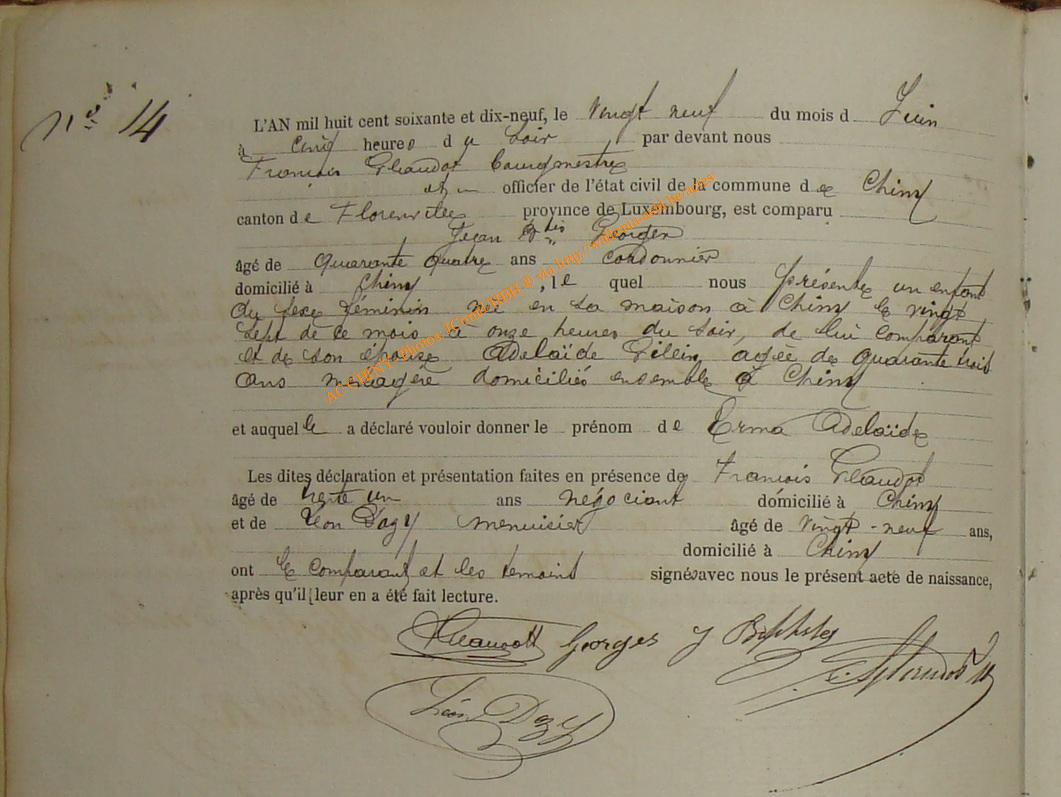 n° 14
L'AN mil huit cent soixante et dix-neuf, le vingt neuf du mois d Juin
à cinq heures du soir par devant nous
François Glaudot bourgmestre
officier de l'état civil de la commune de Chiny
canton de Florenville province de Luxembourg, est comparu
Jean Btis Georges
âgé de quarante quatre ans cordonnier
domicilié à Chiny, le quel nous présente un enfant
du sexe féminin née en sa maison à Chiny le vingt
sept de ce mois à onze heures du soir, de lui comparant
et de son épouse Adelaïde Gillin, agée de quarante trois
ans menagère domiciliés ensemble à Chiny
et auquel le a déclaré vouloir donner le prénom de Erma Adelaïde
Les dites déclaration et présentation faites en présence de François Glaudot
âgé de trente un ans négociant domicilié à Chiny
et de Léon Dazy menuisier âgé de vingt-neuf ans,
domicilié à Chiny
ont le comparant et les temoins signés avec nous le présent acte de naissance,
après qu'il leur en a été fait lecture.
Georges J Bptiste
Léon Dazy